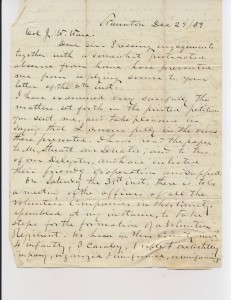 Staunton Dec 23/59
Col J. W. Ware.
Dear Sir. Pressing engagements
together with a somewhat protracted
absence from home have prevented
me from replying sooner to your
letter of the 8th inst.
I have examined very carefully the
matters set forth in the printed petition
you sent me, and take pleasure in
saying that I concur fully in the views
there presented. I have sent the paper
to Mr. Stuart our senator, and to two
of our Delegates, and have enlisted
their friendly cooperation and support
On Saturday the 31st inst. there is to be
a meeting of the officers of all the
Volunteer Companies in this County,
assembled at my instance, to take
steps for the formation of a Volunteer
Regiment. We have in this
4 Infantry, 3 Cavalry, 1 rifle & 1 artillery
company, organized & uniformed,